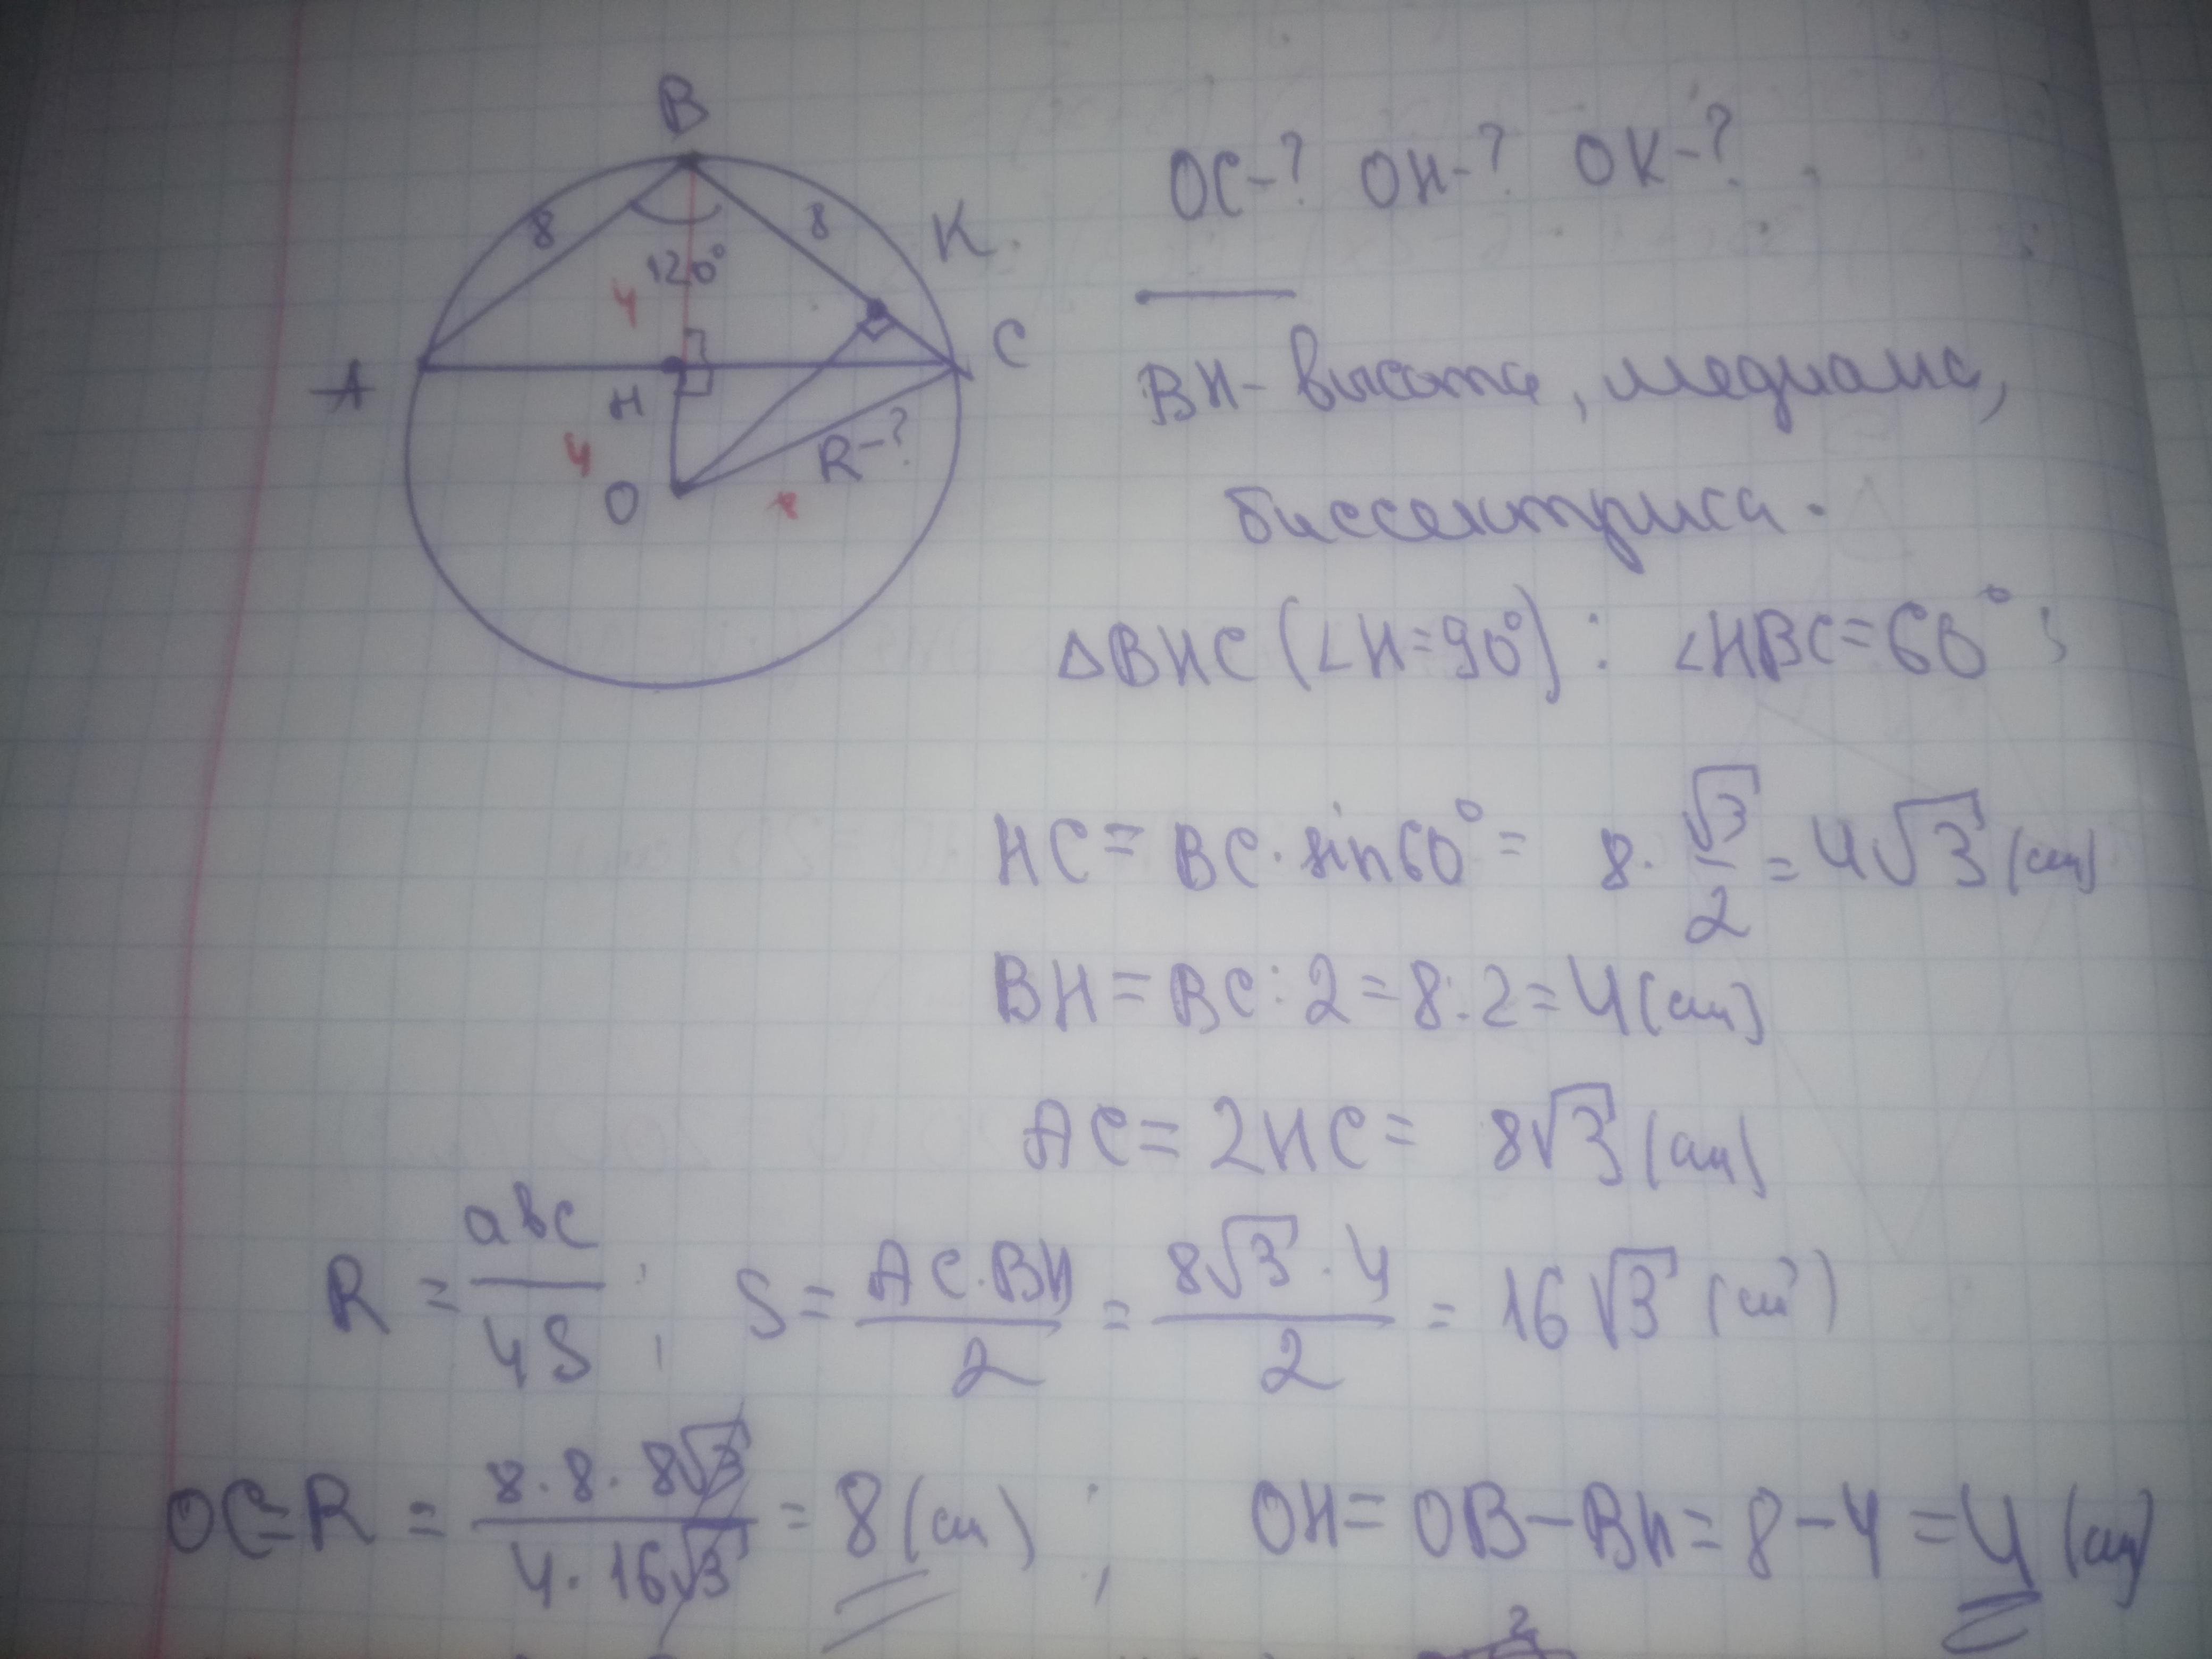 B
8 8 K
120°
4
A H C
4 O R-?
OC-? OH-? OK-?
BH - высота, медиана,
биссектриса.
△BHC (∠H=90°): ∠HBC=60°;
HC = BC · sin60° = 8 · √3/2 = 4√3 (см)
BH = BC : 2 = 8 : 2 = 4 (см)
AC = 2HC = 8√3 (см)
R = abc/4S ; S = AC·BH/2 = 8√3 · 4/2 = 16√3 (см²)
OC=R = 8·8·8√3/4·16√3 = 8 (см) ; OH = OB - BH = 8 - 4 = 4 (см)
2